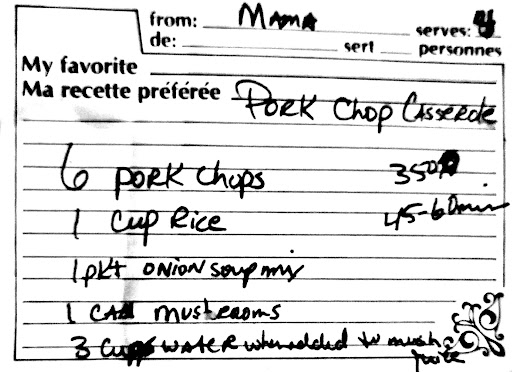 from: MAMA serves: 4
de: sert personnes
My favorite
Ma recette préférée PORK Chop CASSEROLE
6 PORK Chops 350°
1 Cup RICE 45-60 min
1 pkt ONION Soup mix
1 CAN MUSHROOMS
3 Cups WATER when added to mush
juice